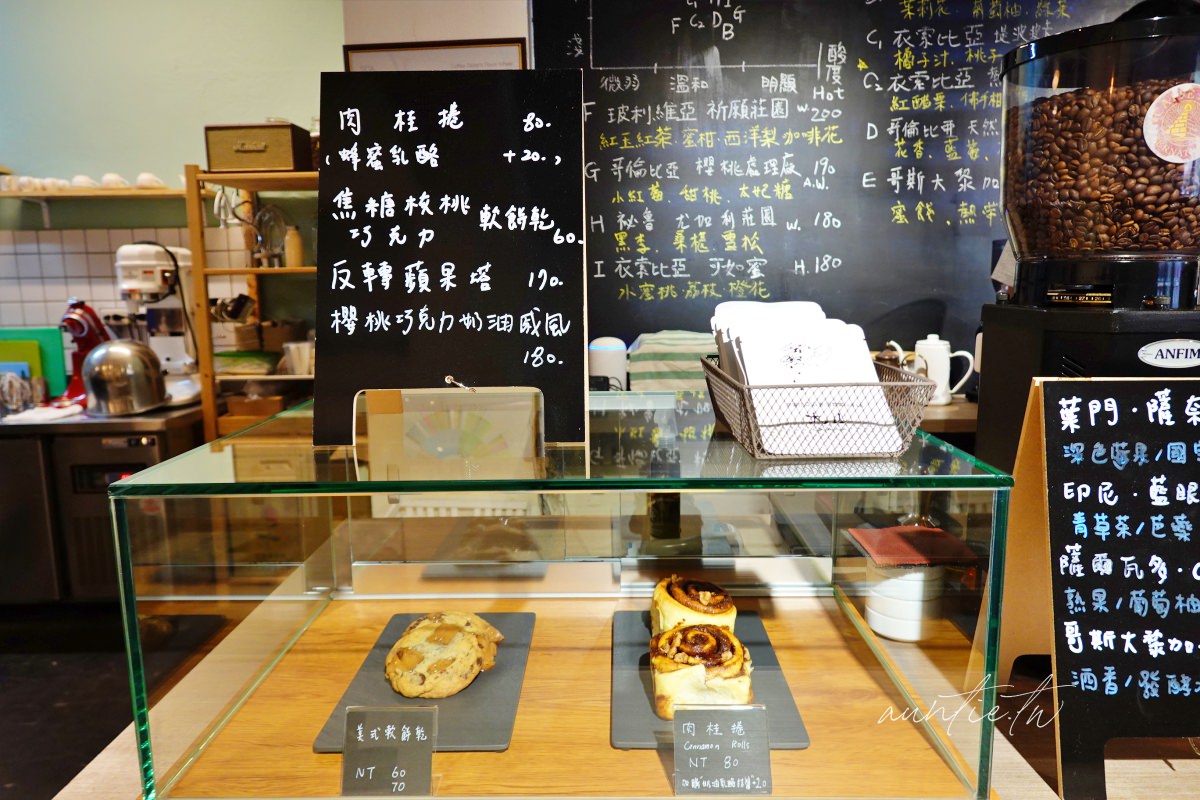 肉桂捲 80.
(蜂蜜乳酪 +20.)
焦糖核桃
巧克力 軟餅乾 60.
反轉蘋果塔 170.
櫻桃巧克力奶油戚風
180.
F C₂ D G
B
淺
微弱 溫和 明顯 酸度
Hot
F 玻利維亞 祈願莊園 W. 200
紅玉紅茶.蜜柑.西洋梨.咖啡花
G 哥倫比亞 櫻桃處理廠 190
小紅莓.甜桃.太妃糖 A.W.
H 祕魯 尤加利莊園 W. 180
黑李.桑椹.雪松
I 衣索比亞 可如蜜 H. 180
水蜜桃.荔枝.橙花
茉莉花.葡萄柚.綠茶
C₁ 衣索比亞
橘子汁.桃子
C₂ 衣索比亞
紅醋栗.佛手柑
D 哥倫比亞 天然
花香.藍莓.
E 哥斯大黎加
蜜餞.熱帶
ANFIM
葉門.薩
深色莓果/
印尼.藍眼
青草茶/芭樂
薩爾瓦多.
熟果/葡萄柚
哥斯大黎加
酒香/發酵
美式軟餅乾
NT 60
70
肉桂捲
Cinnamon Rolls
NT 80
auntie.tw